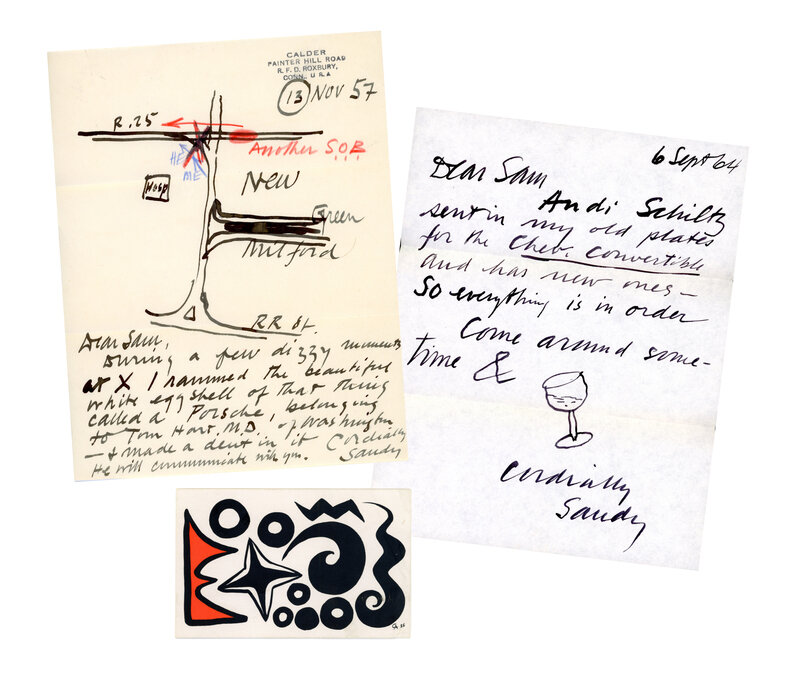 CALDER
PAINTER HILL ROAD
R.F.D. ROXBURY,
CONN., U S A
13 NOV 57
R.25
Another S.O.B
HE
ME
HOSP
New
Green
Milford
RR St.
Dear Sam,
During a few dizzy moments
at X I rammed the beautiful
white eggshell of that thing
called a Porsche, belonging
to Tom Hart, M.D. of Washington
— & made a dent in it Cordially
He will communicate with you. Sandy
6 Sept 64
Dear Sam
Andi Schiltz
sent in my old plates
for the Chev. Convertible
and has new ones—
So everything is in order
Come around some-
time &
Cordially
Sandy